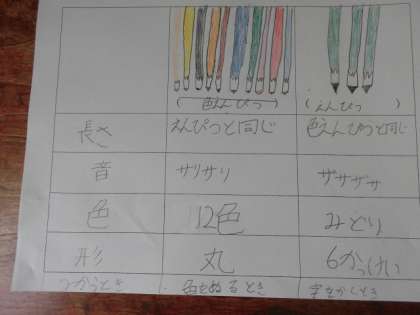 (色えんぴつ) (えんぴつ)
長さ えんぴつと同じ 色えんぴつと同じ
音 サリサリ ザザザザ
色 12色 みどり
形 丸 6かっけい
つかうとき 色をぬるとき 字をかくとき